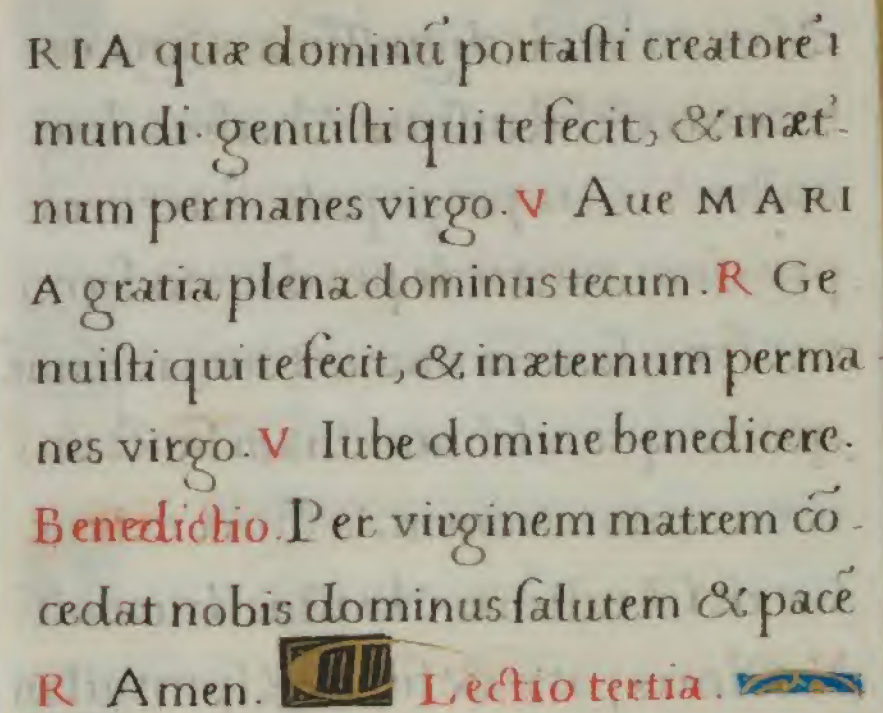 RIA quæ dominū portaſti creatorē ı
mundi. genuiſti qui te fecit, & inæt̓-
num permanes virgo. V Aue MARI
A gratia plena dominus tecum. R Ge
nuiſti qui te fecit, & inæternum perma
nes virgo. V Iube domine benedicere.
Benedictio. Per virginem matrem cō-
cedat nobis dominus ſalutem & pacē
R Amen. Lectio tertia.